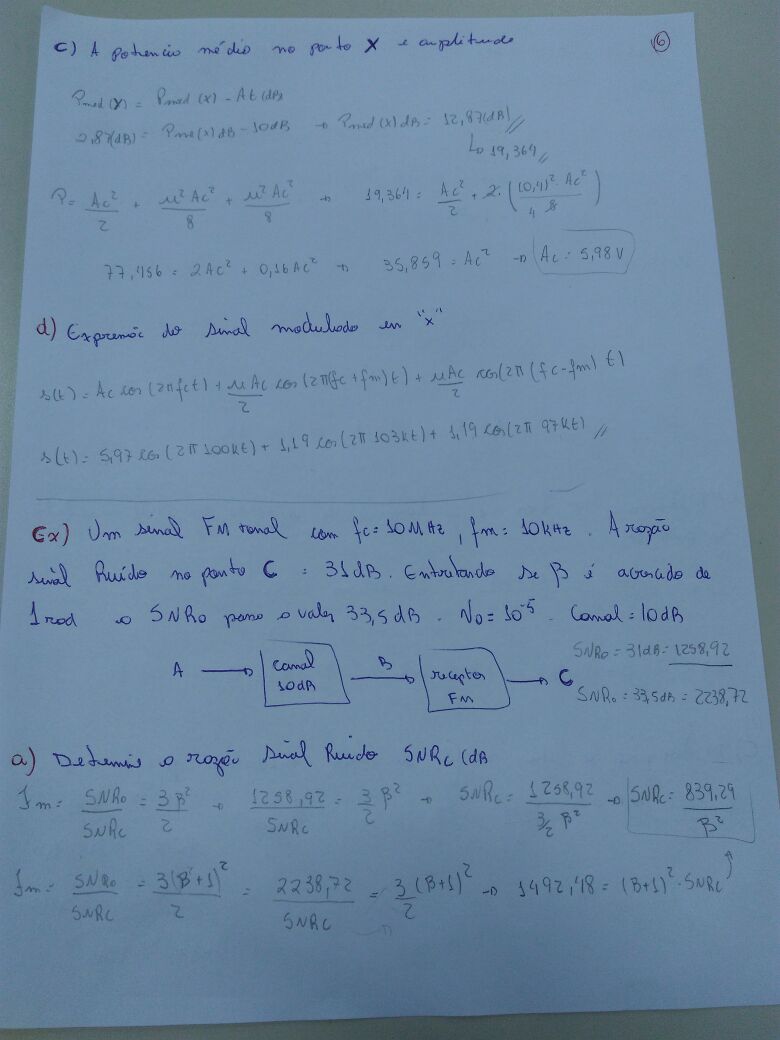 6
c) A potencia médio no ponto X e amplitude
Pmed (Y) = Pmed (x) - At (dB)
2,87(dB) = Pmed(x)dB - 10dB → Pmed(x)dB = 12,87(dB)//
↳ 19,364//
P = Ac²/2 + μ²Ac²/8 + μ²Ac²/8 → 19,364 = Ac²/2 + 2·((0,4)²·Ac²/4 8)
77,456 = 2Ac² + 0,16Ac² → 35,859 = Ac² → Ac = 5,98V
d) Expressão do sinal modulado em "x"
s(t) = Ac cos(2πfct) + μAc/2 cos(2π(fc+fm)t) + μAc/2 cos(2π(fc-fm)t)
s(t) = 5,97 cos(2π100kt) + 1,19 cos(2π103kt) + 1,19 cos(2π 97kt)//
Ex) Um sinal FM tonal com fc = 10MHz, fm = 10kHz. A razão
sinal Ruído no ponto C = 31dB. Entretando se β é acrescido de
1rad o SNRo passa o valor 33,5dB. No = 10⁻⁵. Canal = 10dB
SNRo = 31dB = 1258,92
A → canal 10dB B → receptor FM → C
SNRo = 33,5dB = 2238,72
a) Determine o razão sinal Ruido SNRc (dB
fm = SNRo/SNRc = 3β²/2 → 1258,92/SNRc = 3/2 β² → SNRc = 1258,92/(3/2 β²) → SNRc = 839,29/β²
fm = SNRo/SNRc = 3(β+1)²/2 = 2238,72/SNRc = 3/2 (β+1)² → 1492,48 = (β+1)²·SNRc